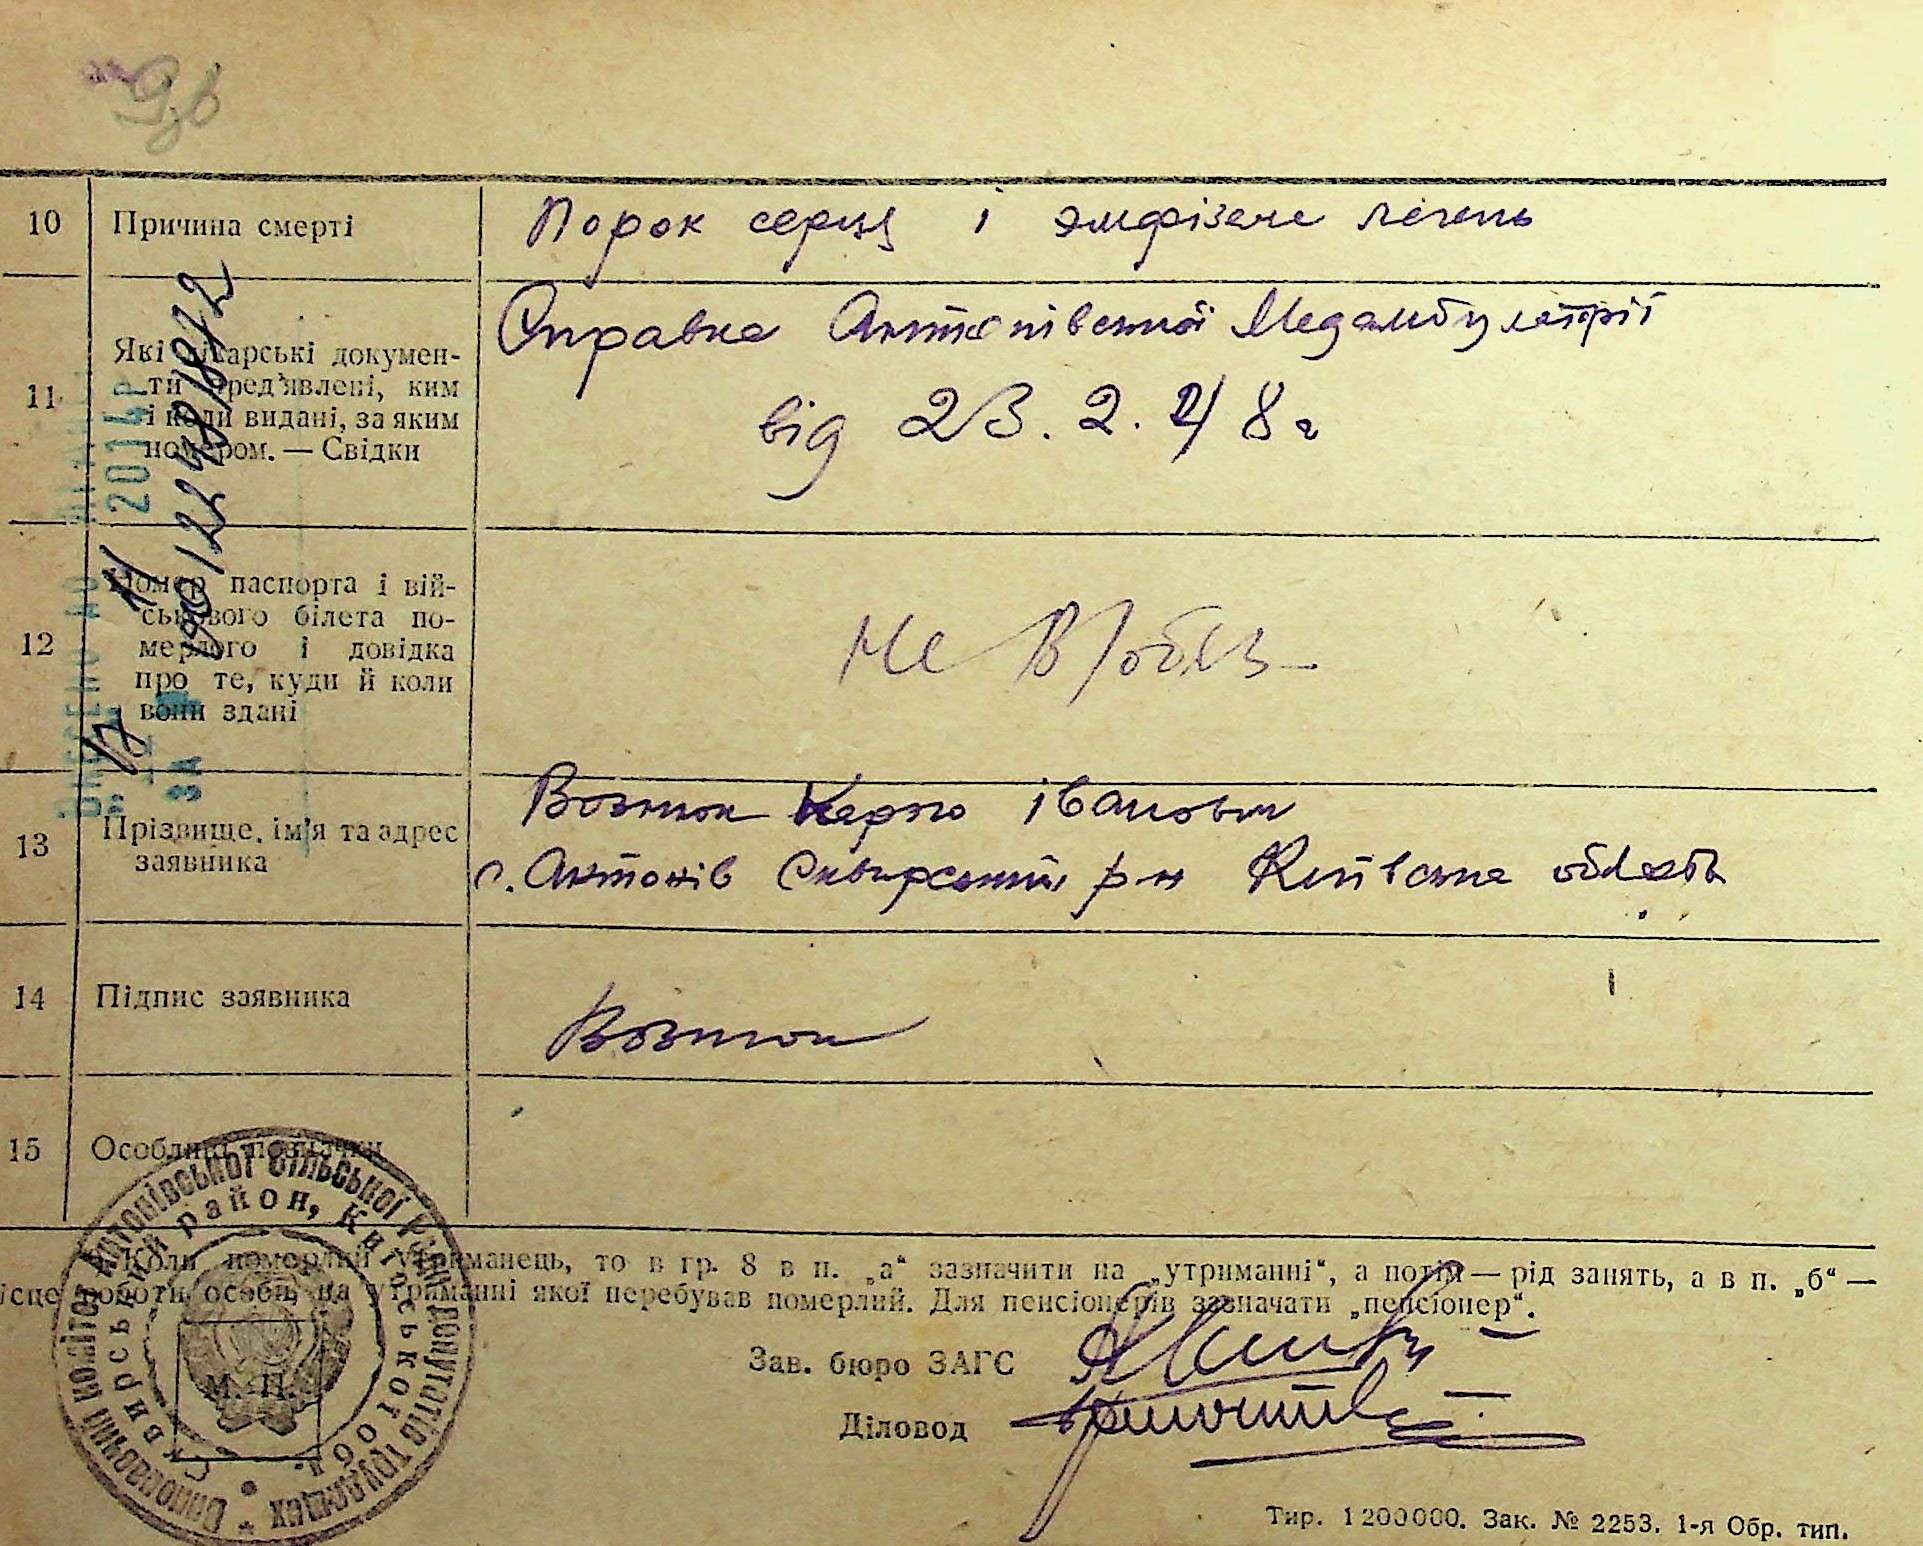 10 Причина смерті Порок серця і эмфізема лёгень
11 Які лікарські докумен-
ти пред'явлені, ким
і коли видані, за яким
номером. — Свідки
Справка Антонівської Медамбулаторії
від 23. 2. 48 г
12 Номер паспорта і вій-
ськового білета по-
мерлого і довідка
про те, куди й коли
вони здані
Не в/обяз
13 Прізвище, ім'я та адрес
заявника
Вознюк Карпо Іванович
с. Антонів Сквирський р-н Київська область
14 Підпис заявника Вознюк
15 Особливі позначки
Коли померлий утриманець, то в гр. 8 в п. „а“ зазначити на „утриманні“, а потім — рід занять, а в п. „б“ —
місце роботи особи, на утриманні якої перебував померлий. Для пенсіонерів зазначати „пенсіонер“.
Зав. бюро ЗАГС
Діловод
М. П.
Виконавчий комітет Антонівської сільської Ради депутатів трудящих
Сквирський район, Київської обл.
2014 р
за
Тир. 1200000. Зак. № 2253. 1-я Обр. тип.